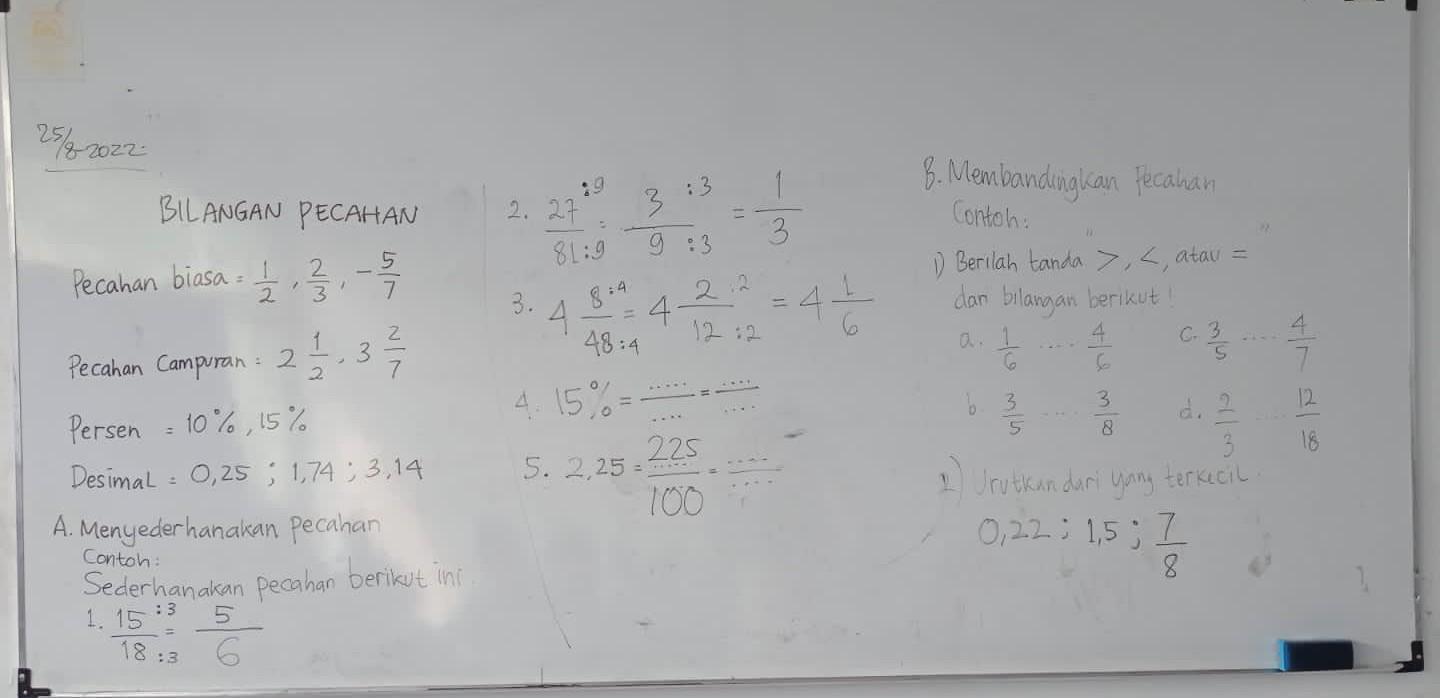 25/8-2022.
BILANGAN PECAHAN
Pecahan biasa = 1/2, 2/3, -5/7
Pecahan Campuran = 2 1/2, 3 2/7
Persen = 10%, 15%
Desimal = 0,25 ; 1,74 ; 3,14
A. Menyederhanakan pecahan
Contoh:
Sederhanakan pecahan berikut ini.
1. 15 :3 / 18 :3 = 5/6
2. 27 :9 / 81 :9 = 3 :3 / 9 :3 = 1/3
3. 4 8 :4 / 48 :4 = 4 2 :2 / 12 :2 = 4 1/6
4. 15% = ..... / .... = .... / ....
5. 2,25 = 225 ..... / 100 = .... / ....
B. Membandingkan Pecahan
Contoh:
1) Berilah tanda ">, <, atau ="
dari bilangan berikut!
a. 1/6 .... 4/6 c. 3/5 .... 4/7
b. 3/5 .... 3/8 d. 2/3 .... 12/18
2) Urutkan dari yang terkecil.
0,22 ; 1,5 ; 7/8